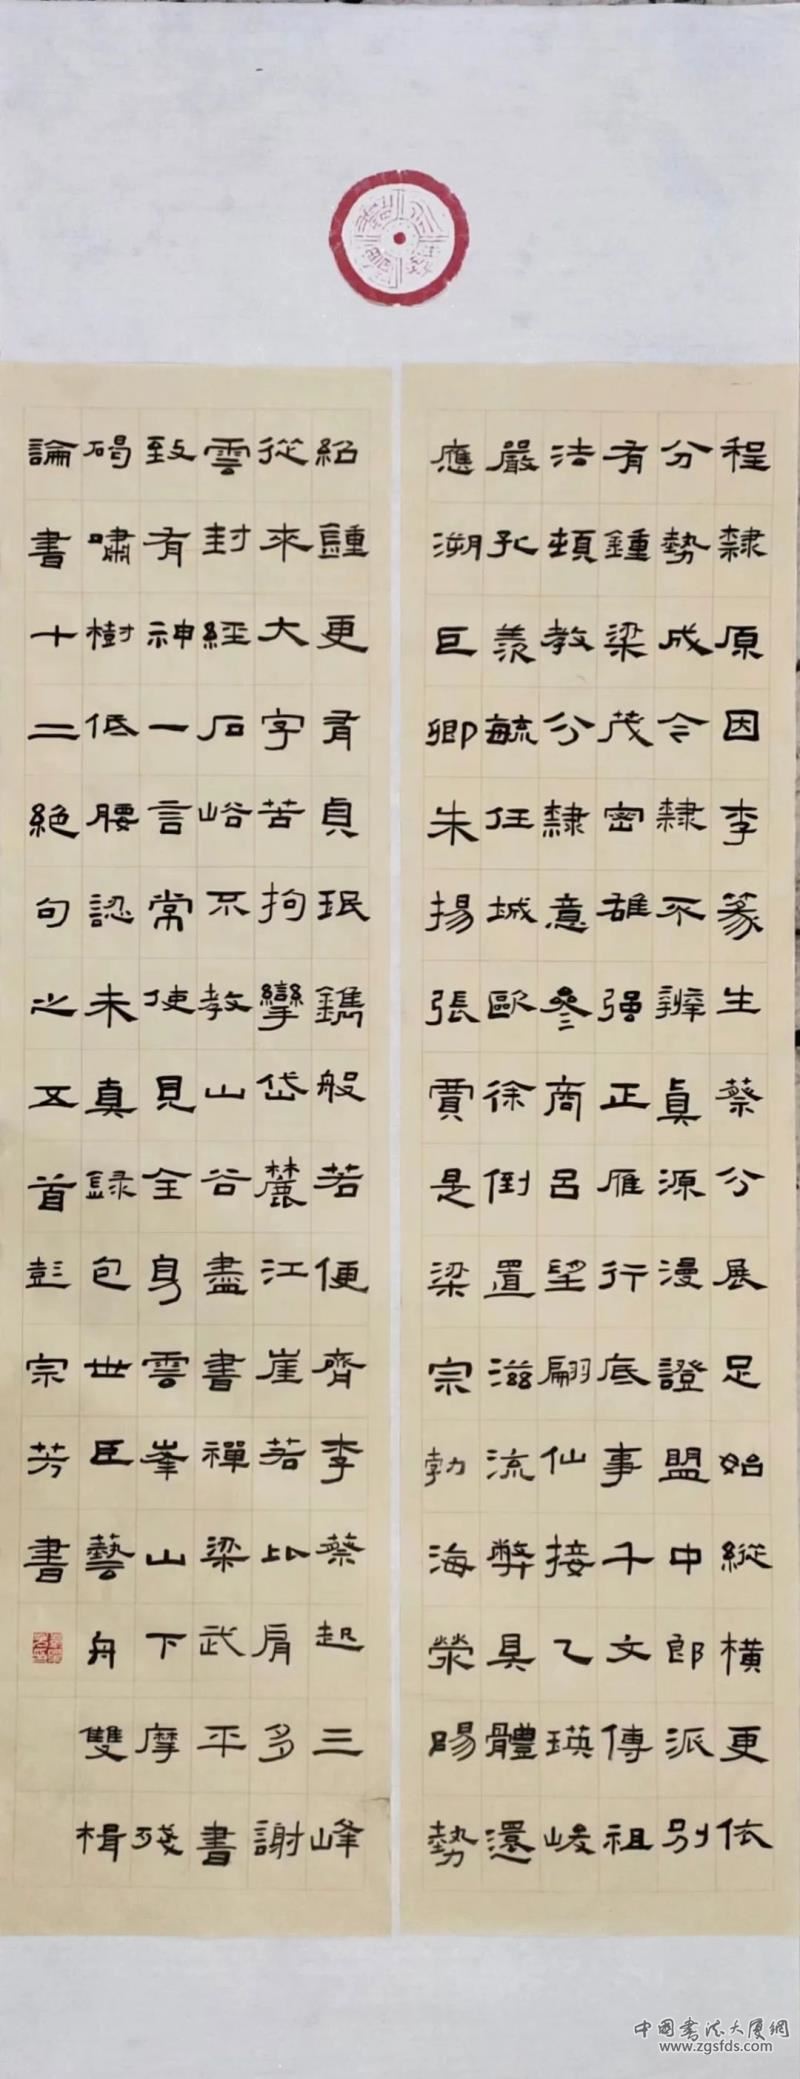 程隸原因李篆生蔡分展足始縱橫更依
分勢成今隸不辨真源漫證盟中郎派別
有鍾梁茂密雄强正雁行底事千文傳祖
法頓教分隸意參商呂望翩仙接乙瑛峻
嚴孔羨毓任城歐徐倒置滋流弊具體還
應溯巨卿朱揚張賈是梁宗勃海滎陽勢
紹鍾更有貞珉鐫般若便齊李蔡起三峰
從來大字苦拘攣岱麓江崖若比肩多謝
雲封經石峪不教山谷盡書禪梁武平書
致有神一言常使見全身雲峯山下摩殘
碣嘯樹低腰認未真錄包世臣藝舟雙楫
論書十二絕句之五首彭宗芳書
中國書法大厦網
www.zgsfds.com